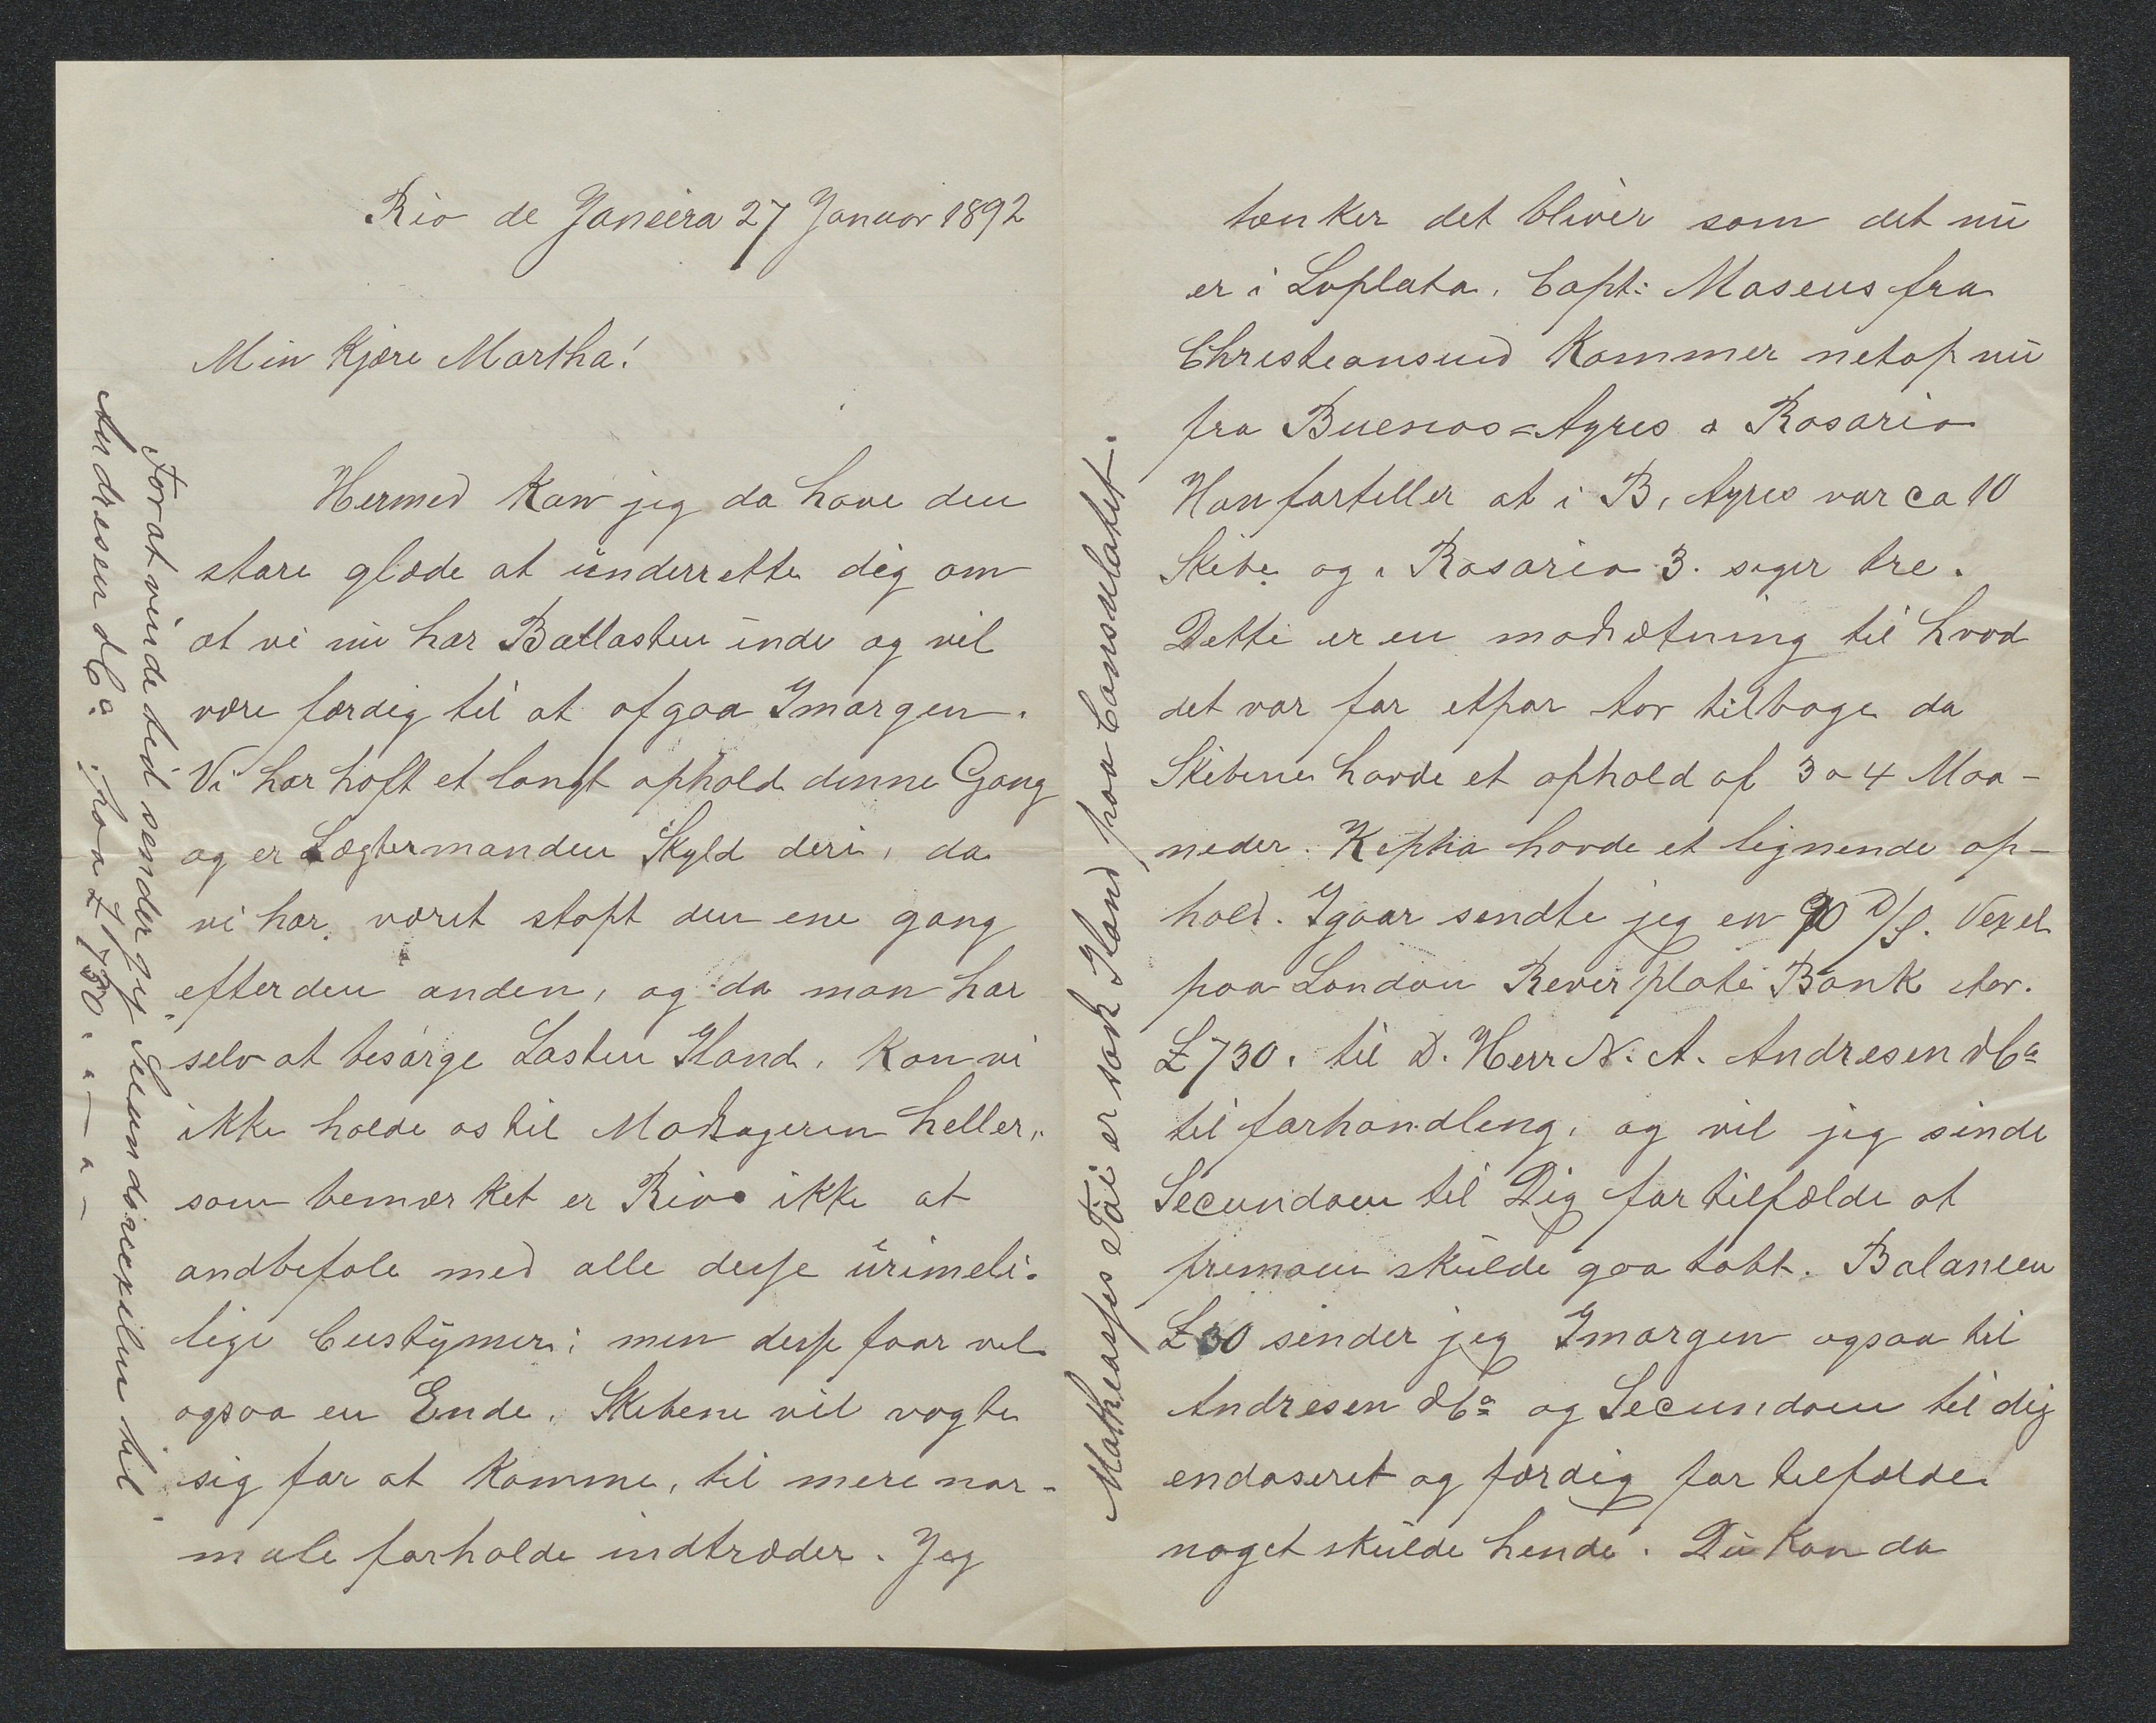 Rio de Janeira 27 Januar 1892
Min kjære Martha!
Hermed kan jeg da have den
store glæde at underrette dig om
at vi nu har Ballasten inde og vil
være færdig til at afgaa Imorgen.
Vi har haft et langt ophold denne Gang
og er Lægtermanden Skyld deri, da
vi har været stoft den ene gang
efter den anden, og da man har
selv at besørge Lasten Iland, kan vi
ikke holde os til Modtageren heller,
som bemærket er Rio ikke at
andbefale med alle desse urimeli-
lige Custymer; men desse faar vel
ogsaa en Ende. Skibene vil vogte
sig for at komme, til mere nor-
male forholde indtræder. Jeg
For at vinde tid sender jeg Secundavexelen til
Andresen & Co. paa £ 730.
tænker det bliver som det nu
er i Laplata. Capt: Maseus fra
Christiansund kommer netop nu
fra Buenos=Ayres & Rosario
Han forteller at i B. Ayres var ca 10
Skibe og i Rosario 3. siger tre.
Dette er en modsætning til hvad
det var for etpar Aar tilbage da
Skibene havde et ophold af 3 a 4 Maa-
neder. Kepha havde et lignende op-
hold. Igaar sendte jeg en 90 D/S. Vexel
paa London River plate Bank stor.
£ 730. til D. Herr N. A. Andresen & Co
til forhandling, og vil jeg sende
Secundaen til Dig for tilfælde at
primaen skulde gaa tabt. Balancen
£ 30 sender jeg Imorgen ogsaa til
Andresen & Co og Secundaen til dig
endaseret og færdig for tilfælde
noget skulde hende. Du kan da
Mathiasses Tøi er sat Iland paa Consulatet.